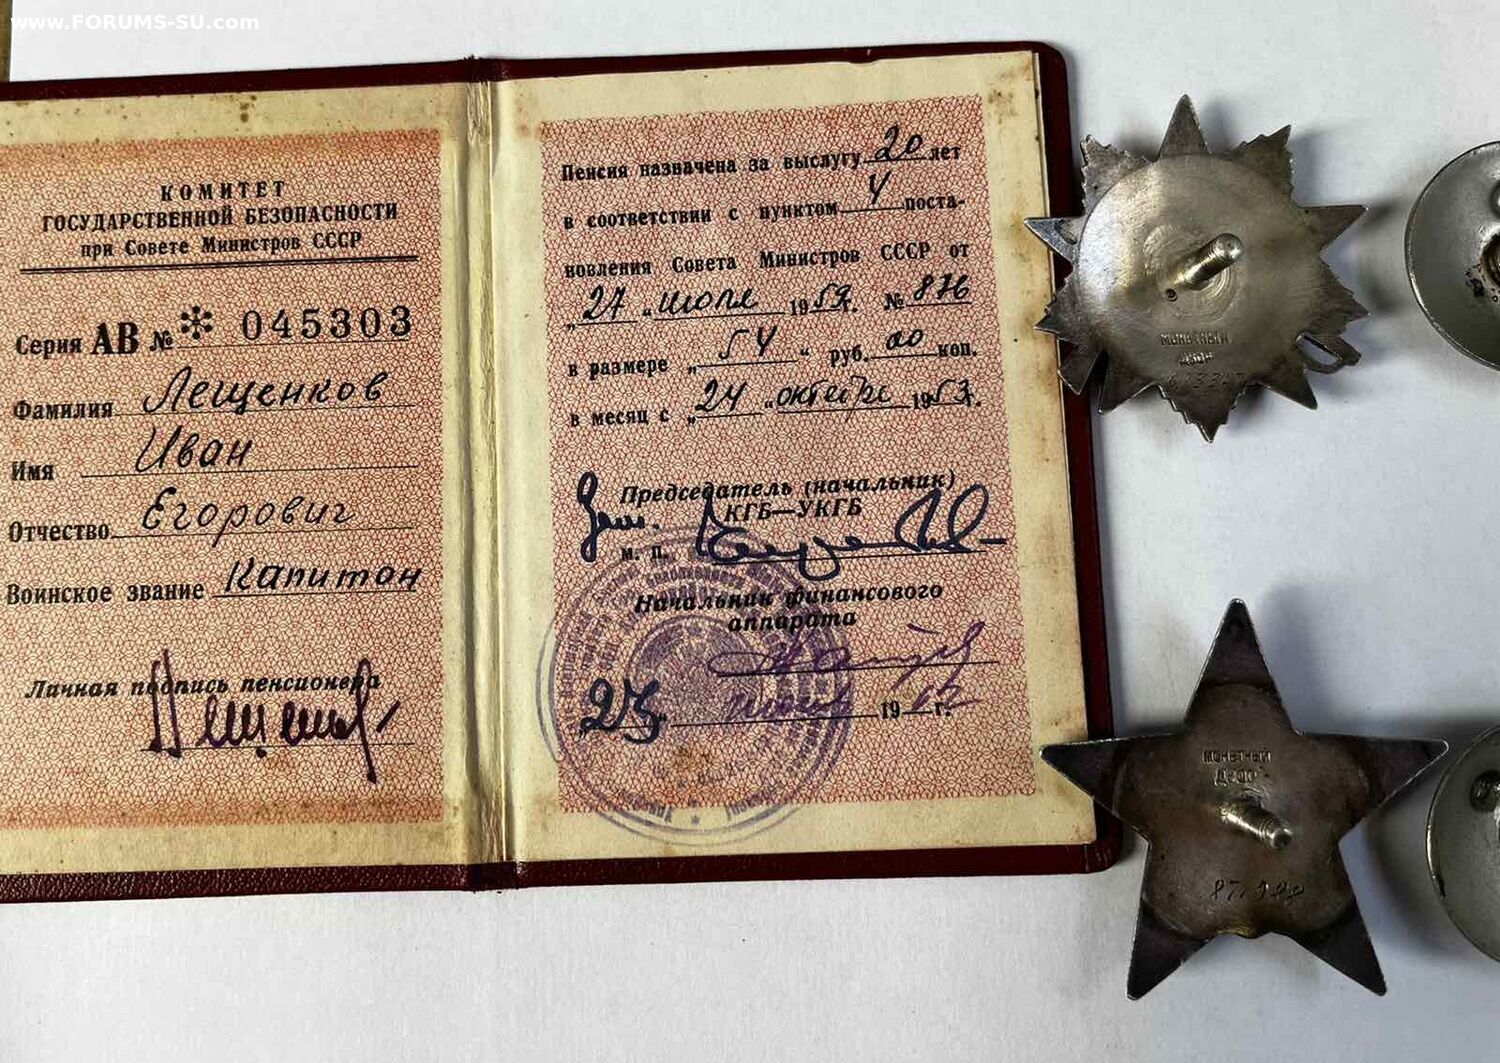 www.FORUMS-SU.com
КОМИТЕТ
ГОСУДАРСТВЕННОЙ БЕЗОПАСНОСТИ
при Совете Министров СССР
Серия АВ № * 045303
Фамилия Лещенков
Имя Иван
Отчество Егорович
Воинское звание Капитан
Личная подпись пенсионера
Пенсия назначена за выслугу 20 лет
в соответствии с пунктом 4 поста-
новления Совета Министров СССР от
„27" июля 1959г. № 876
в размере „54" руб. 00 коп.
в месяц с „24" октября 1953г.
Председатель (начальник)
КГБ—УКГБ
м. п.
Начальник финансового
аппарата
25 19 г.
МОНЕТНЫЙ
ДВОР
МОНЕТНЫЙ
ДВОР